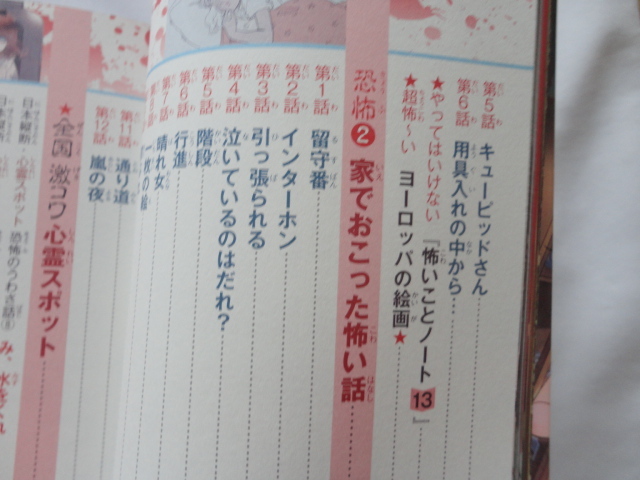 第5話 キューピッドさん
第6話 用具入れの中から
★やってはいけない『怖いことノート13』
★超怖~い ヨーロッパの絵画★
恐怖2 家でおこった怖い話
第1話 留守番
第2話 インターホン
第3話 引っ張られる
第4話 泣いているのはだれ?
第5話 階段
第6話 行進
第7話 晴れ女
第8話 一枚の絵
第11話 通り道
第12話 嵐の夜
★全国 激コワ 心霊スポット
日本縦断 心霊スポット 恐怖のうわさ話⑧